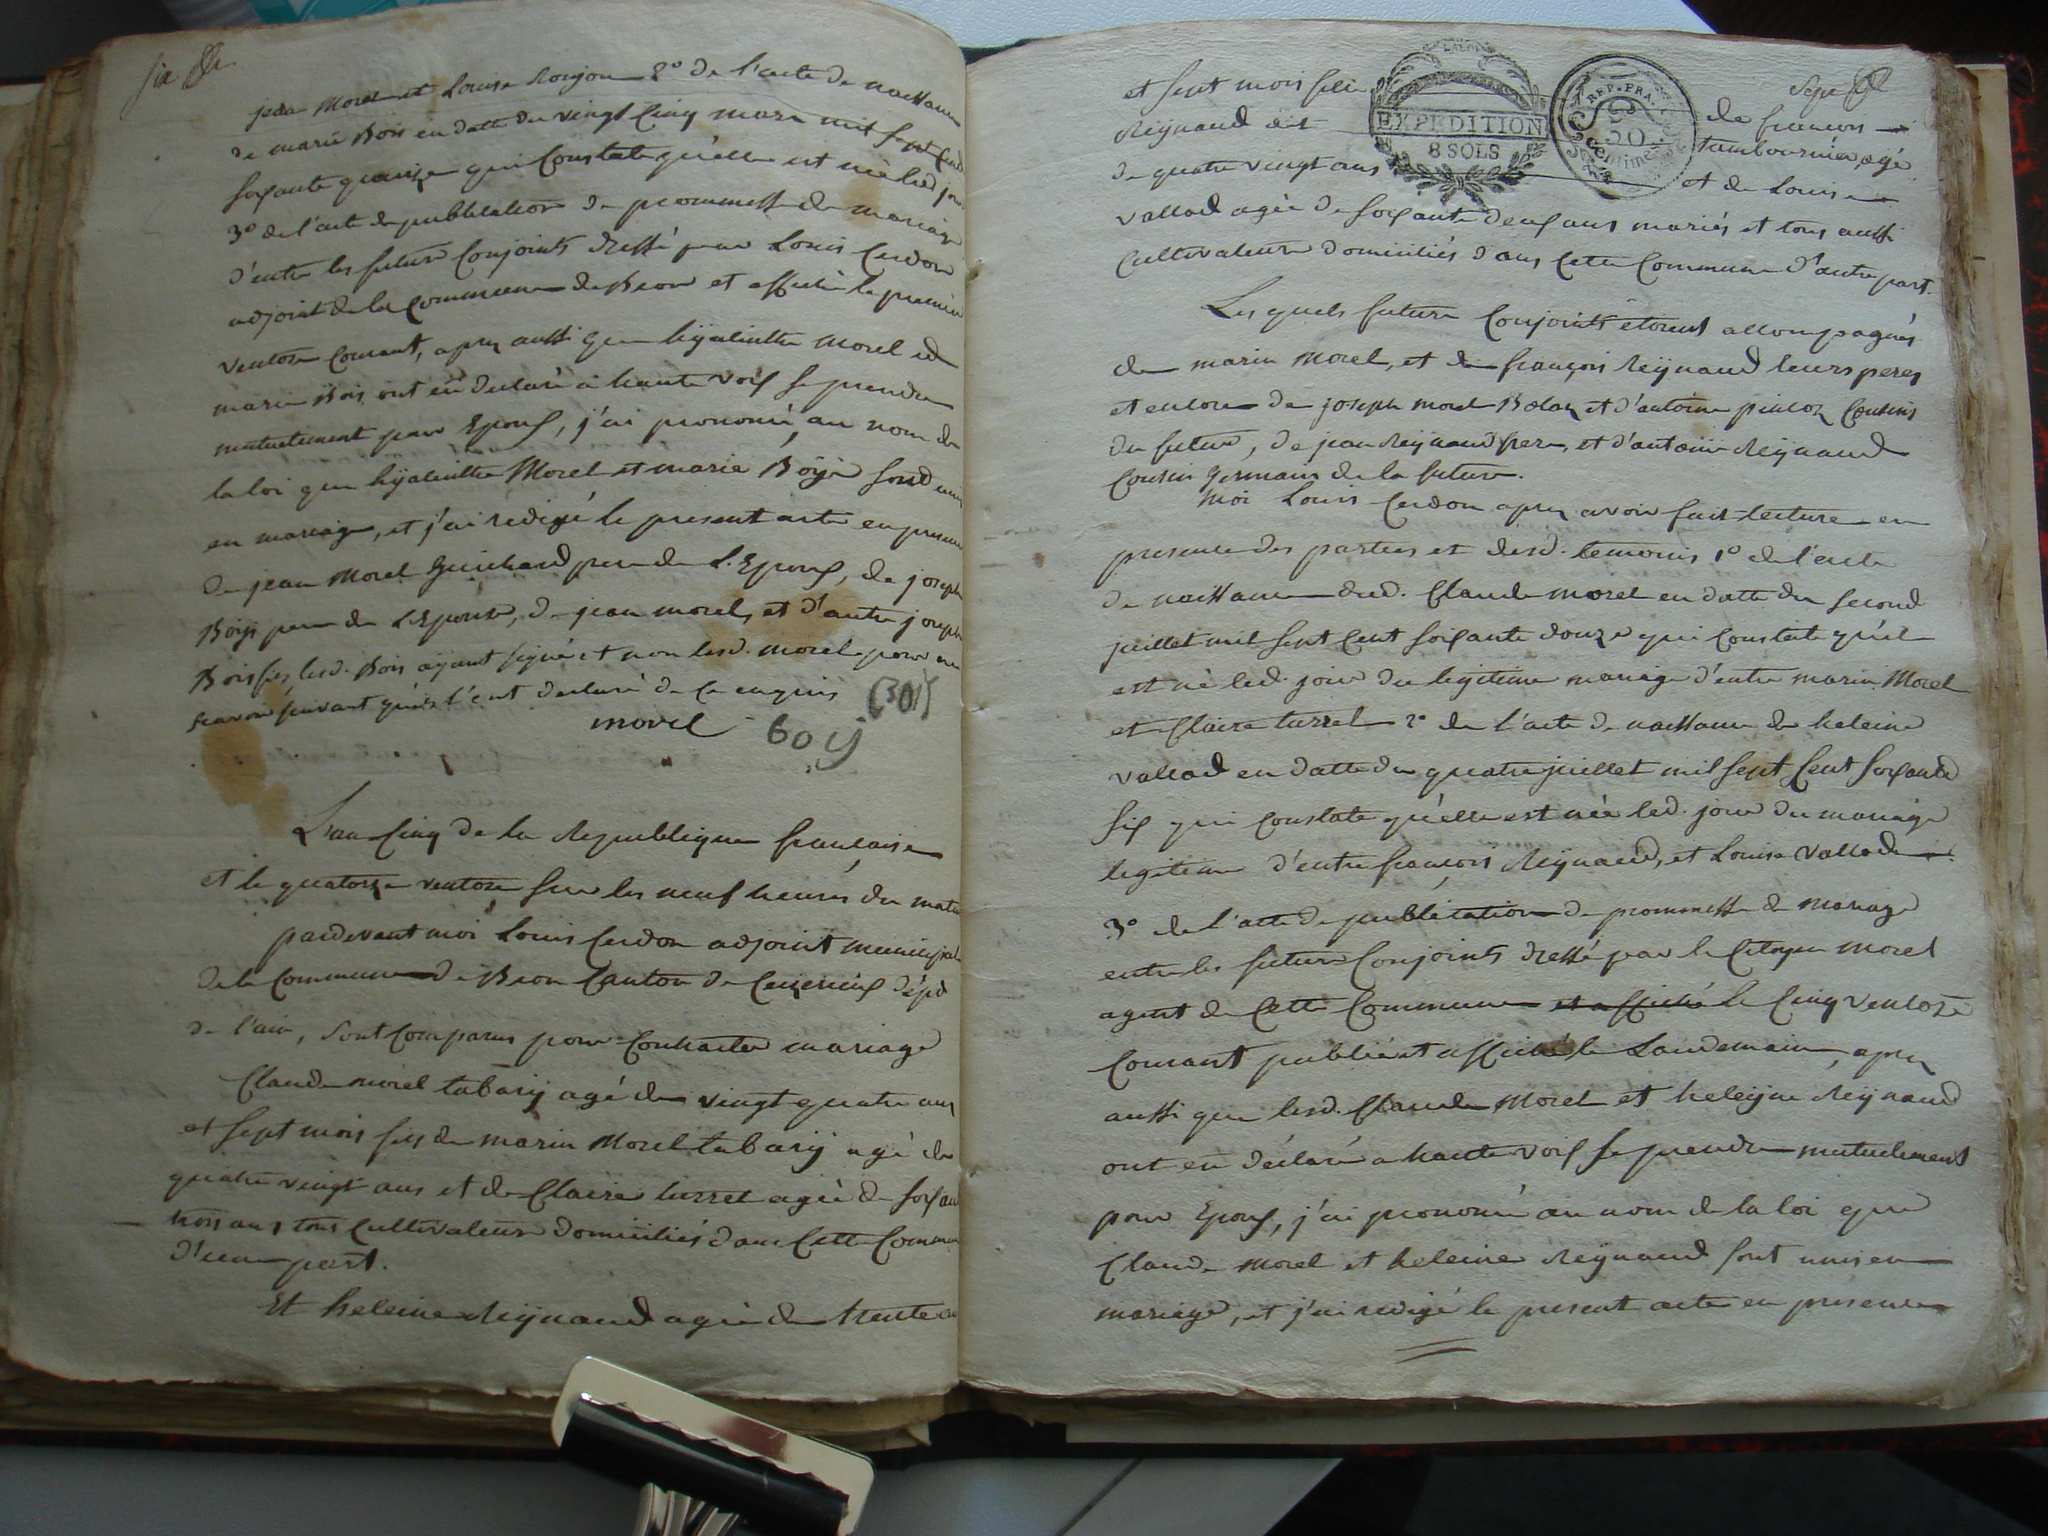 six
jean Morel et Louise Roujon 2° de l'acte de naissance
de marie Bois en datte du vingt Cinq mars mil sept Cent
soixante quinze qui Constate qu'elle est née led jour
3° de l'acte de publication de prommesse de mariage
d'entre les futurs Conjoints dressé par Louis Cerdon
adjoint de la Commune de Brion et affiché le premier
ventose Courant, aprez aussi que hyacinthe Morel et
marie Bois ont eu declaré a haute voix se prendre
mutuelement pour Epoux, j'ai prononcé au nom de
la loi que hyacinthe Morel et marie Boije sont unis
en mariage, et j'ai redigé le present acte en presence
de jean Morel Guichard pere de L'Epoux, de joseph
Boije pere de L'Epouse, de jean morel, et d'autre joseph
Bois fils lesd. Bois aÿant signé et non lesd. morel pour ne
scavoir suivant qu'ils l'ont declaré de ce enquis
morel boij BOIJ
L'an Cinq de la Republique francaise
et le quatorze ventose sur les neuf heures du matin
pardevant moi Louis Cerdon adjoint municipal
de la Commune de Brion Canton de Ceizeriux dépt
de l'ain, sont Comparus pour Contracter mariage
Claude morel tabarij agé de vingt quatre ans
et sept mois fils de marin Morel tabarij agé de
quatre vingt ans et de Claire turrel agée de soixante
trois ans tous Cultivateurs domiciliés dans Cette Commune
d'une part.
Et heleine Reÿnaud agée de trente ans
Sept
et sept mois fille de francois
Reÿnaud dit tambournier agé
de quatre vingt ans et de Louise
EXPEDITION
8 SOLS
REP. FRA.
50
Centimes
vallod agée de soixante deux ans mariés et tous aussi
Cultivateurs domiciliés dans Cette Commune d'autre part.
Les quels futurs Conjoints étoient accompagnés
de marin Morel, et de françois Reÿnaud leurs peres
et encore de joseph morel Bolaz et d'antoine pinloz Cousins
du futur, de jean Reÿnaud frere, et d'antoine Reÿnaud
Cousin Germain de la future.
Moi Louis Cerdon aprez avoir fait lecture en
presence des parties et desd. temoins 1° de l'acte
de naissance dud. Claude morel en datte du second
juillet mil sept Cent soixante douze qui Constate qu'il
est né led. jour du legitime mariage d'entre marin Morel
et Claire turrel 2° de l'acte de naissance de heleine
vallod en datte du quatre juillet mil sept Cent soixante
six qui Constate qu'elle est née led. jour du mariage
legitime d'entre françois Reÿnaud, et Louise vallod
3° de l'acte de publication de prommesse de mariage
entre les futurs Conjoints dressé par le Citoyen morel
agent de Cette Commune et affiché le Cinq ventose
Courant publié et affiché le Landemain, aprez
aussi que lesd. Claude Morel et heleÿne Reÿnaud
ont eu déclaré a haute voix se prendre mutuelement
pour Epoux, j'ai prononcé au nom de la loi que
Claude morel et heleine Reÿnaud sont unis en
mariage, et j'ai redigé le present acte en presence